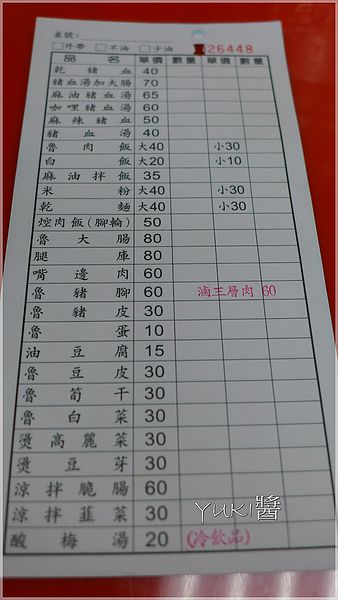 桌號:
□外帶 □不油 □少油 26448
品名 單價 數量 單價 數量
乾豬血 40
豬血湯加大腸 70
麻油豬血湯 65
咖哩豬血湯 60
麻辣豬血 50
豬血湯 40
魯肉飯 大40 小30
白飯 大20 小10
麻油拌飯 35
米粉 大40 小30
乾麵 大40 小30
焢肉飯(腳輪) 50
魯大腸 80
腿庫 80
嘴邊肉 60
魯豬腳 60 滷三層肉 60
魯豬皮 30
魯蛋 10
油豆腐 15
魯豆皮 30
魯筍干 30
魯白菜 30
燙高麗菜 30
燙豆芽 30
涼拌脆腸 60
涼拌韮菜 30
酸梅湯 20 (冷飲品)
YUKI醬